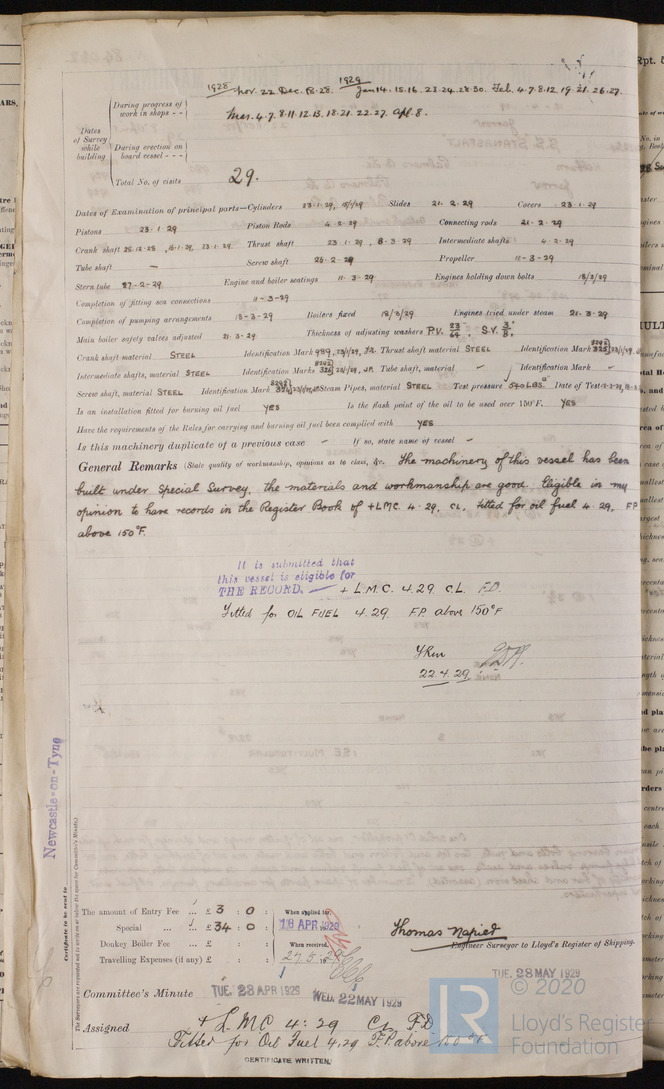 1928 Nov. 22 Dec. 18.28. 1929 Jan 14. 15. 16. 23. 24. 28. 30. Feb. 4. 7. 8. 12. 19. 21. 26. 27.
During progress of work in shops - -
Mar. 4. 7. 8. 11. 12. 13. 18. 21. 22. 27. Apl. 8.
Dates of Survey while building
During erection on board vessel - - -
Total No. of visits 29.
Dates of Examination of principal parts—Cylinders 23.1.29, Slides 21.2.29 Covers 23.1.29
Pistons 23.1.29 Piston Rods 4.2.29 Connecting rods 21.2.29
Crank shaft 28.12.28, 23.1.29 Thrust shaft 23.1.29, 8.3.29 Intermediate shafts 4.2.29
Tube shaft — Screw shaft 26-2-29 Propeller 11-3-29
Stern tube 27-2-29 Engine and boiler seatings 11.3-29 Engines holding down bolts 18/3/29
Completion of fitting sea connections 11-3-29
Completion of pumping arrangements 18-3-29 Boilers fixed 18/3/29 Engines tried under steam 21.3-29
Main boiler safety valves adjusted 21.3-29 Thickness of adjusting washers P.V. 23/64, S.V. 3/8"
Crank shaft material STEEL Identification Mark Thrust shaft material STEEL Identification Mark
Intermediate shafts, material STEEL Identification Marks Tube shaft, material - Identification Mark -
Screw shaft, material STEEL Identification Mark Steam Pipes, material STEEL Test pressure 540 LBS Date of Test
Is an installation fitted for burning oil fuel YES Is the flash point of the oil to be used over 150°F. YES
Have the requirements of the Rules for carrying and burning oil fuel been complied with YES
Is this machinery duplicate of a previous case - If so, state name of vessel -
General Remarks (State quality of workmanship, opinions as to class, &c. The machinery of this vessel has been
built under Special Survey, the materials and workmanship are good. Eligible in my
opinion to have records in the Register Book of +LMC 4.29, CL, fitted for oil fuel 4.29, FP
above 150°F.
It is submitted that
this vessel is eligible for
THE RECORD. — + L.M.C. 4.29. C.L. F.D.
Fitted for OIL FUEL 4.29. F.P. above 150°F
22.4.29
Newcastle-on-Tyne
Certificate to be sent to
The Surveyors are requested not to write on or below the space for Committee's Minute.
The amount of Entry Fee ... £ 3 : 0 : When applied for,
Special ... £ 34 : 0 : 18 APR 1929
Donkey Boiler Fee ... £ : : When received,
Travelling Expenses (if any) £ : : 27.5.29
Thomas Napier
Engineer Surveyor to Lloyd's Register of Shipping.
TUE. 28 MAY 1929
Committee's Minute TUE. 23 APR 1929 WED. 22 MAY 1929
Assigned + L.M.C 4:29 CL F.D
Fitted for Oil Fuel 4,29 F.P. above 150°F
CERTIFICATE WRITTEN.
LR
© 2020
Lloyd's Register
Foundation